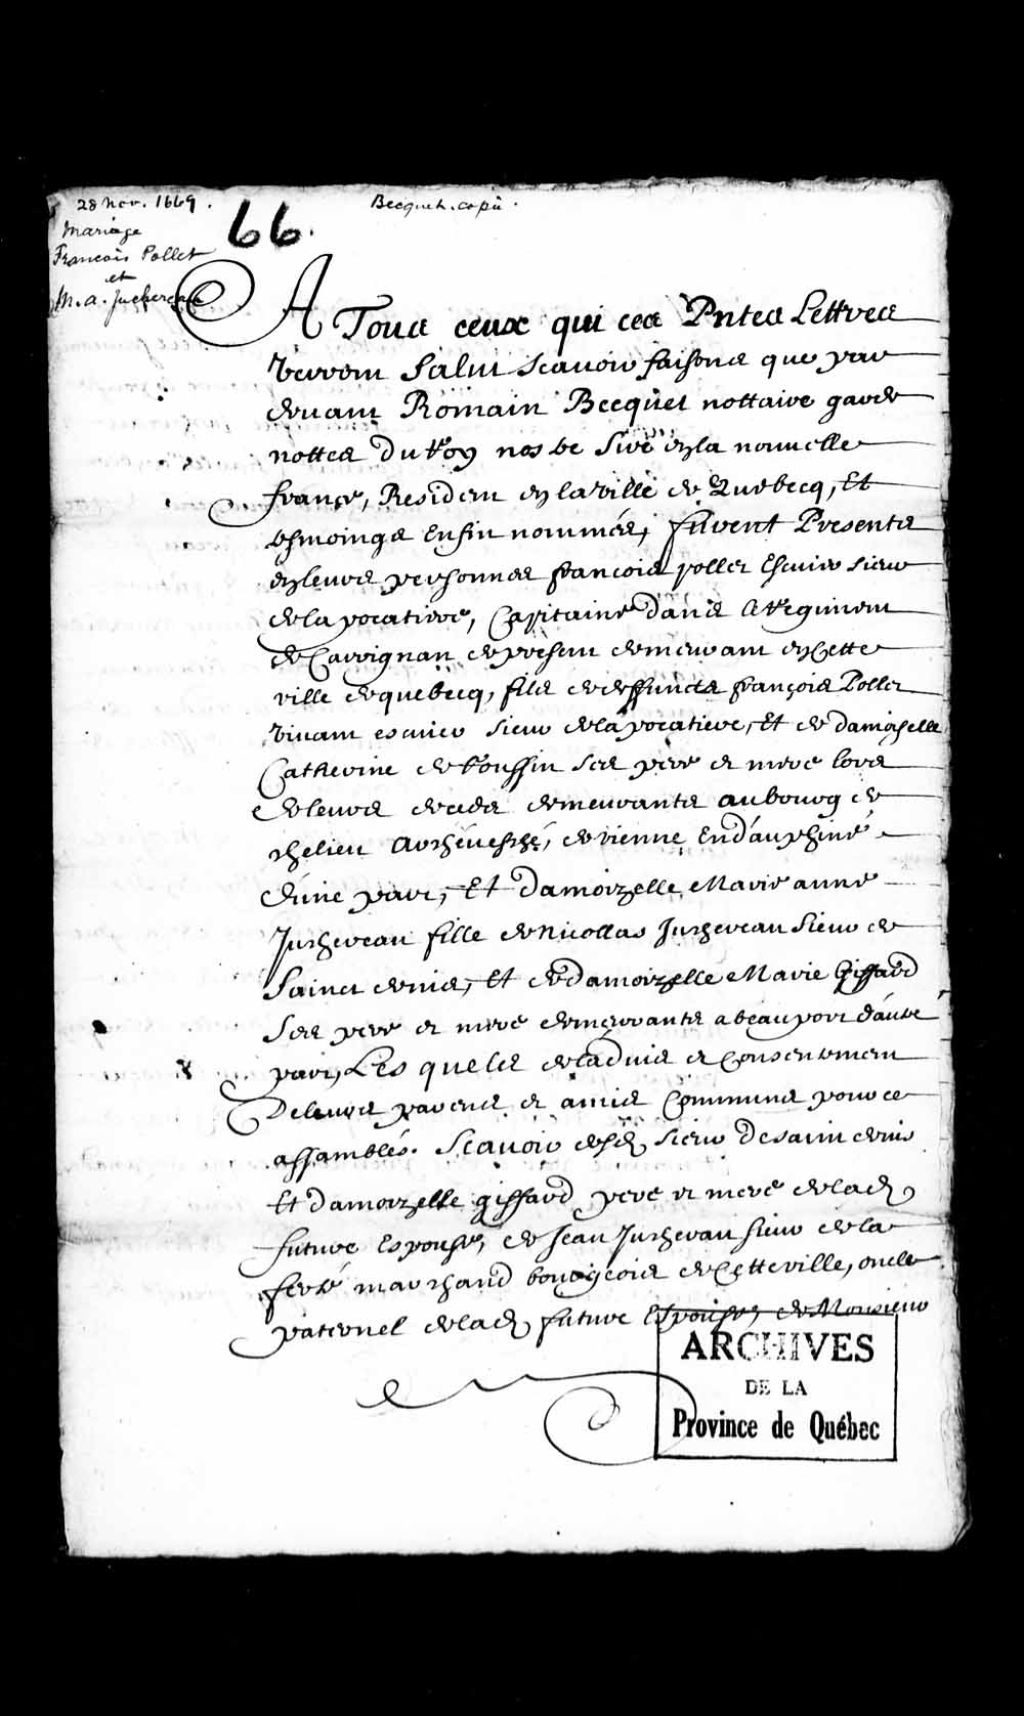 28 Nov. 1669.
Becquet. copie.
Mariage
66.
Francois Pollet
et
M. a. Juchereau
A Tous ceux qui ces Pntes Lettres
Verront Salut scauoir faisons que par
deuant Romain Becquet nottaire garde
nottes du Roy nos
en la nouuelle
françe, Resident en la ville de Quebecq, Et
tesmoings Enfin nommés, furent Presents
en leurs personnes françois pollet Escuier sieur
de la pocatiere, Capitaine dans le Regiment
de Carrignan de present demeurant en Cette
ville de quebecq, fils de deffuncts françois Pollet
viuant escuier sieur de la pocatiere, Et de damoyselle
Catherine de Roussin ses pere et mere lors
de leurs deceds demeurants au bourg de
chelieu Archeuesché, de vienne En dauphiné
d'une part, Et damoizelle Marie anne
Juchereau fille de Nicollas Juchereau sieur de
Sainct denis, Et de damoizelle Marie Giffard
ses pere et mere demeurants a beauport d'autre
part, Les quels de laduis et Consentement
De leurs parens et amis Communs pour ce
assamblés. Scauoir desd sieur de saint denis
Et damoizelle giffard pere et mere de lad
future Espouse, de Jean Juchereau sieur de la
ferté marchand bourgeois de Cette ville, oncle
paternel de lad future Espouse, de Monsieur
ARCHIVES
DE LA
Province de Québec